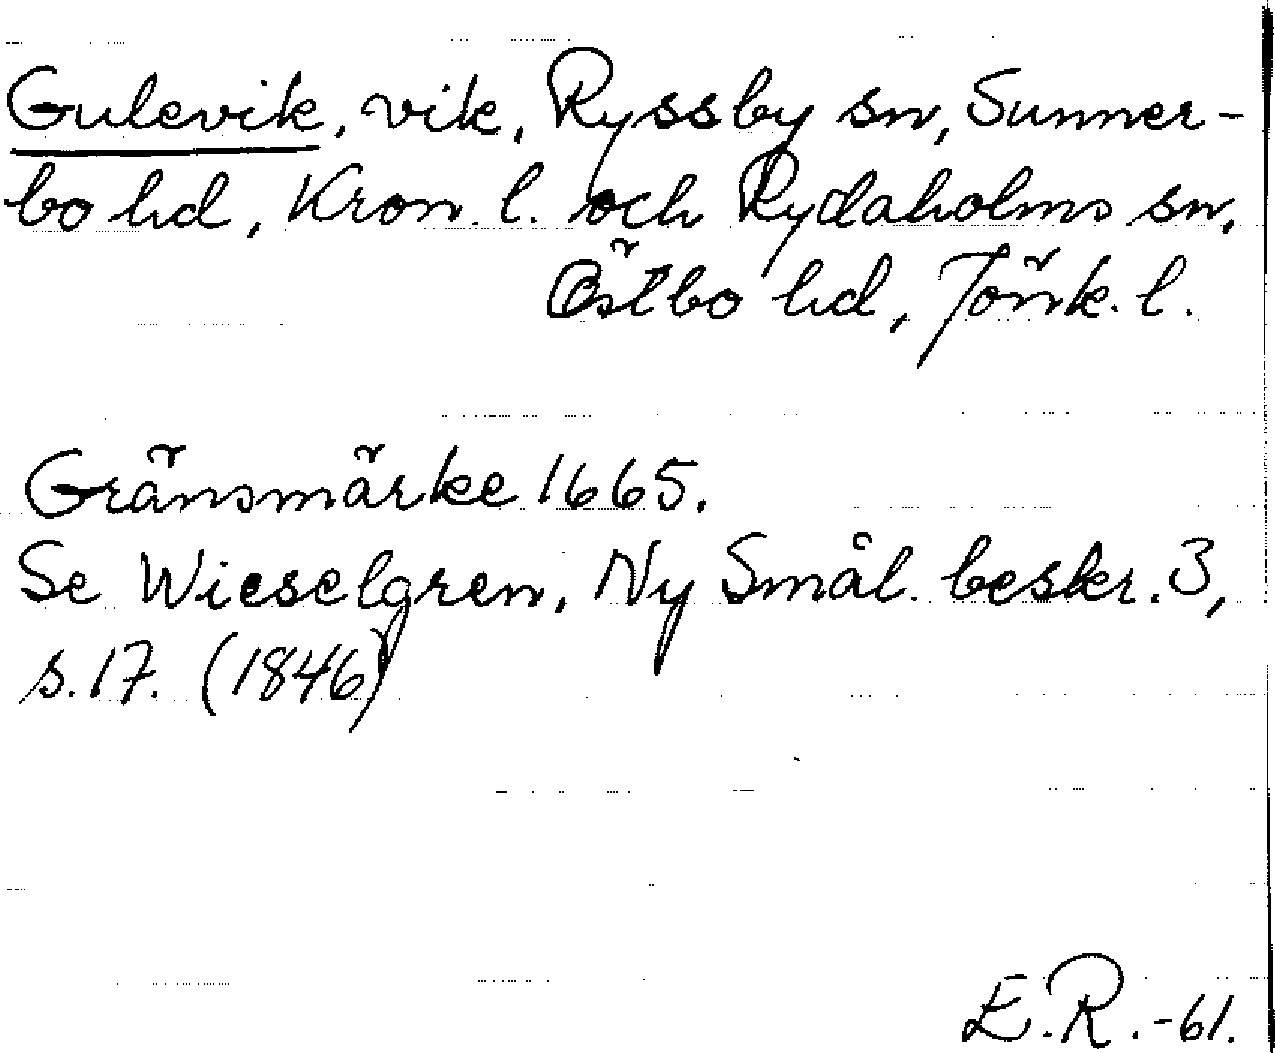 Gulevik, vik, Ryssby sn, Sunner-
bo hd, Kron. l. och Rydaholms sn,
Östbo hd, Jönk. l.
Gränsmärke 1665.
Se Wieselgren, Ny Smål. beskr. 3,
s. 17. (1846)
E.R.-61.